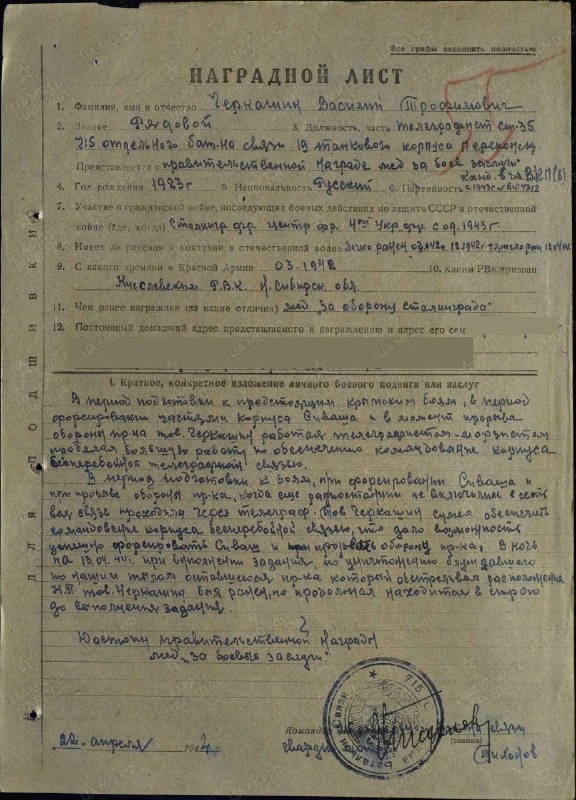 Все графы заполнять полностью
НАГРАДНОЙ ЛИСТ
1. Фамилия, имя и отчество Черкашин Василий Трофимович
2. Звание Рядовой 3. Должность, часть телеграфист ст-35
715 отдельного бат-на связи 19 танкового корпуса Перекопск.
Представляется к правительственной награде мед „за боев. заслуги"
Канд. в чл. ВКП(б)
4. Год рождения 1923 г 5. Национальность Русский 6. Партийность с 1943г.
7. Участие в гражданской войне, последующих боевых действиях по защите СССР и отечественной
войне (где, когда) Сталингр. фр. центр. фр. 4ый Укр. фр. с 09.1943г.
8. Имеет ли ранения и контузии в отечественной войне Легко ранен 12.1942г.
9. С какого времени в Красной Армии 03.1942 10. Каким РВК призван
Киселевским РВК Н.Сибирск. обл.
11. Чем ранее награжден (за какие отличия) мед. „За оборону Сталинграда"
12. Постоянный домашний адрес представляемого к награждению и адрес его сем
I. Краткое, конкретное изложение личного боевого подвига или заслуг
В период подготовки к предстоящим крымским боям, в период
форсирования частями корпуса Сиваша и в момент прорыва
обороны пр-ка тов. Черкашин работая телеграфистом-морзистом
проделал большую работу по обеспечению командование корпуса
бесперебойной телеграфной связью.
В период подготовки к боям, при форсировании Сиваша и
при прорыве обороны пр-ка, когда еще радиостанции не включились в сеть
вся связь проходила через телеграф. Тов Черкашин сумел обеспечить
командование корпуса бесперебойной связью, что дало возможность
успешно форсировать Сиваш и прорвать оборону пр-ка. В ночь
на 13.04.44г. при выполнении задания, по уничтожению блуждавшего
по нашим тылам оставшегося пр-ка который обстреливал расположение
КП тов. Черкашин был ранен, но продолжал находится в строю
до выполнения задания.
Достоин правительственной награды
мед „За боевые заслуги"
Командир связи
гвардии (звание)
Тихонов
22 апреля 194
ДЛЯ ПОДШИВКИ